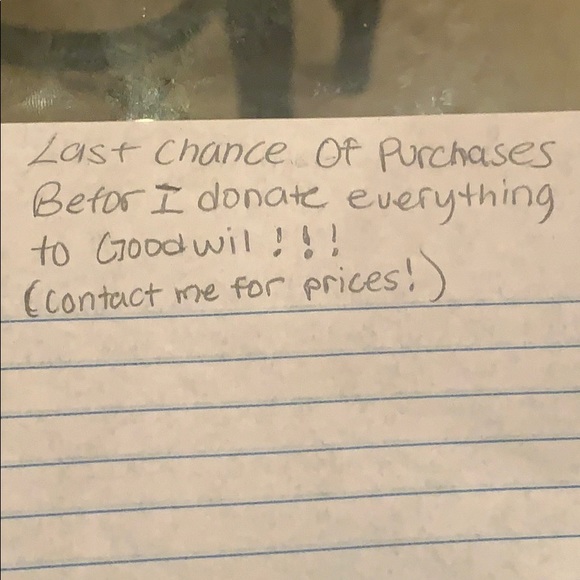 Last Chance Of Purchases
Befor I donate everything
to Goodwil !!!
(Contact me for prices!)